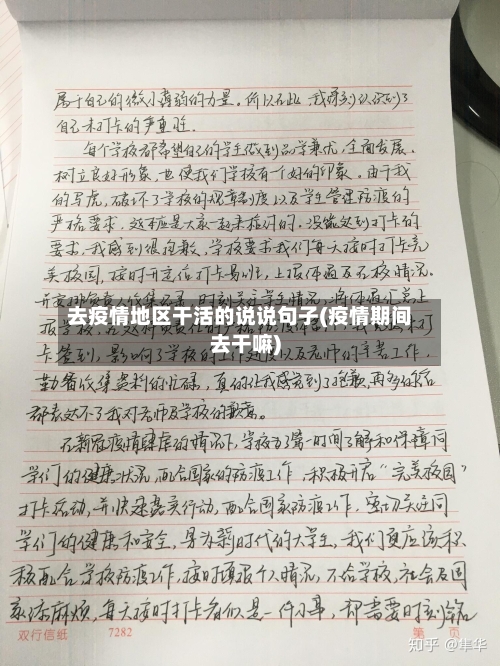 属于自己的微小薄弱的力量。所以在此,我深刻认识到了
自己未打卡的严重性.
每个学校都希望自己的学生做到品学兼优,全面发展,
树立良好形象,也使我们学校有一个好的印象。由于我
的写虎,破坏了学校的规章制度以及学生管理防疫的
严格要求,这本应是大家一起来推讨的。没能达到打卡的
要求,我感到很抱歉,学校要求我们每天按时打卡完
美校园,按时开定位打卡易班,上报体温及不校情况。
去疫情地区干活的说说句子(疫情期间
去干嘛)
卡签到,影响了学校的工作进度以及老师的辛苦工作,
勤备收集资料的忙碌,真的让我感觉到了抱歉,再多的
都表达不了我对老师及学校的歉意。
在新冠疫情肆虐的情况下,学校为了第一时间了解和保障同
学们的健康状况,配合国家的防疫工作,积极开启“完美校园”
打卡活动,并快速落实行动,配合国家防疫工作,密切关注同
学们的健康和安全,身为新时代的大学生,我们更应该积
极配合学校防疫工作,按时填报个人情况,不给学校,社会及国
家添麻烦,每天按时打卡看似是一件小事,却需要时刻铭
双行信纸 7282 第 页
知乎 @隼华